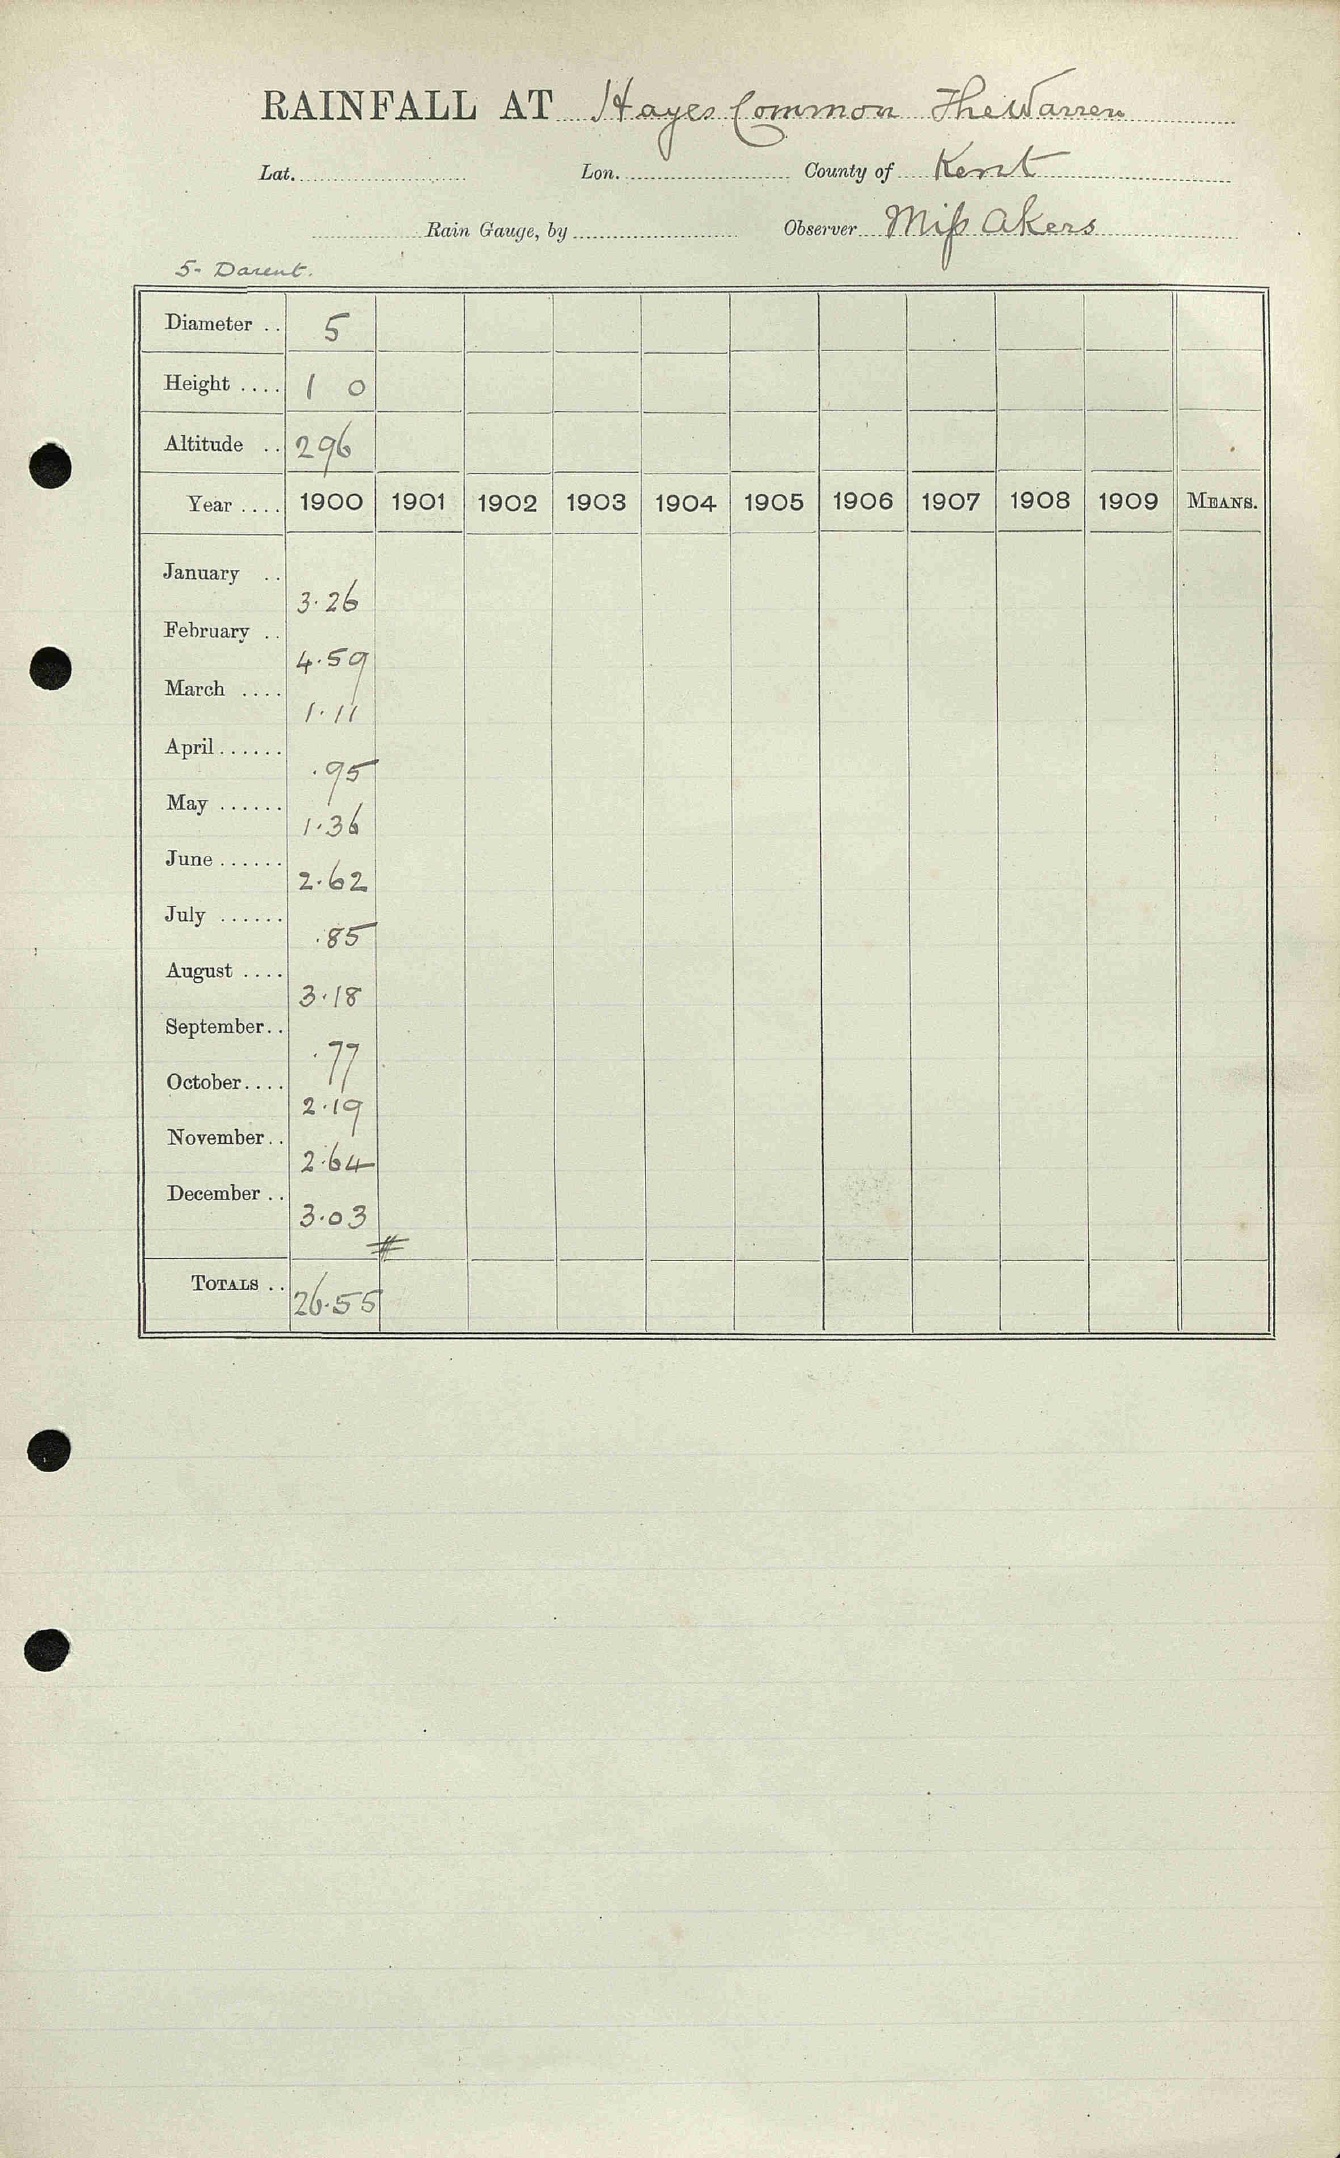 RAINFALL AT Hayes Common The Warren
Lat. Lon. County of Kent
Rain Gauge, by Observer Miss Akers
5- Darent.
Diameter .. 5
Height .... 1 0
Altitude .. 296
Year .... 1900 1901 1902 1903 1904 1905 1906 1907 1908 1909 MEANS.
January .. 3.26
February .. 4.59
March .... 1.11
April...... .95
May ...... 1.36
June...... 2.62
July ...... .85
August .... 3.18
September.. .77
October.... 2.19
November.. 2.64
December .. 3.03
TOTALS .. 26.55